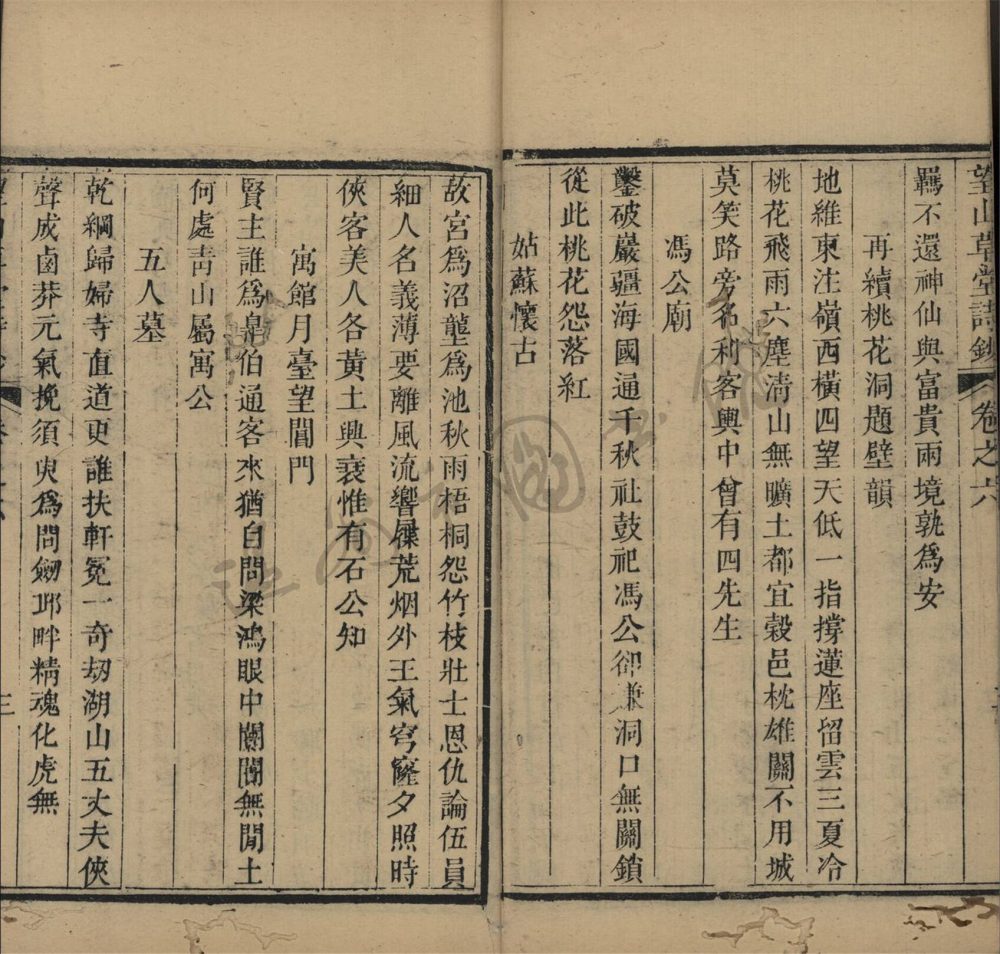 望山草堂詩鈔 卷之六
羈不還神仙與富貴兩境孰爲安
再續桃花洞題壁韻
地維東注嶺西橫四望天低一指撐蓮座留雲三夏冷
桃花飛雨六塵淸山無曠土都宜穀邑枕雄關不用城
莫笑路旁名利客輿中曾有四先生
馮公廟
鑿破巖疆海國通千秋社鼓祀馮公卻嫌洞口無關鎖
從此桃花怨落紅
姑蘇懷古
故宮爲沼壟爲池秋雨梧桐怨竹枝壯士恩仇論伍員
細人名義薄要離風流響屧荒烟外王氣穹窿夕照時
俠客美人各黃土興衰惟有石公知
寓館月臺望閶門
賢主誰爲臯伯通客來猶自問梁鴻眼中闤闠無閒土
何處靑山屬寓公
五人墓
乾綱歸婦寺直道更誰扶軒冕一奇刧湖山五丈夫俠
聲成鹵莽元氣挽須臾爲問劒邱畔精魂化虎無
三